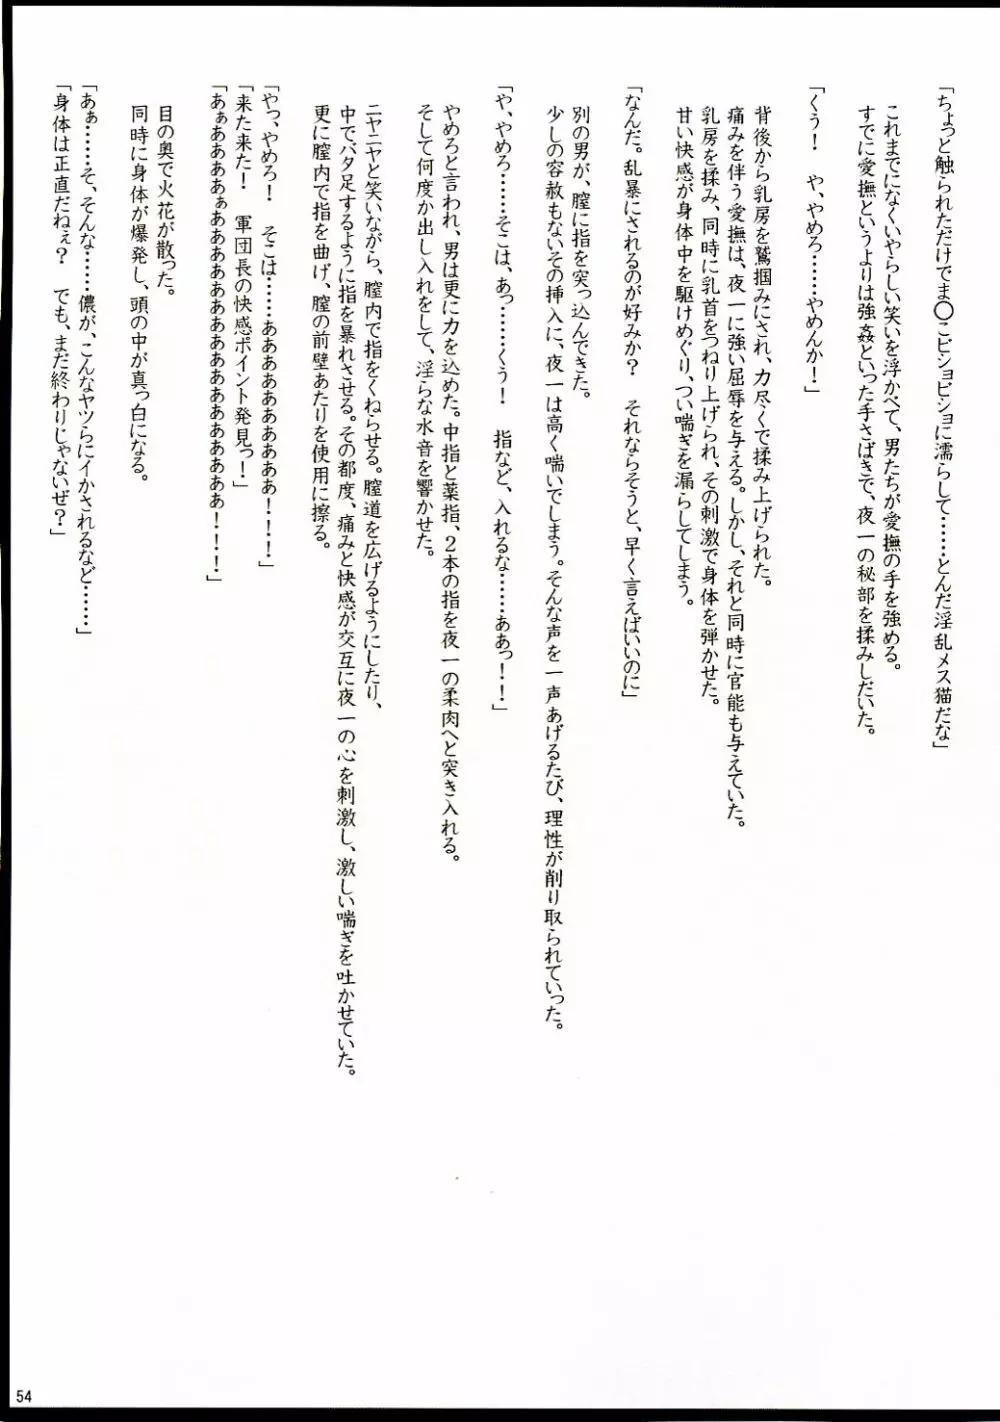 「ちょっと触られただけでま◯こビショビショに濡らして……とんだ淫乱メス猫だな」
これまでになくいやらしい笑いを浮かべて、男たちが愛撫の手を強める。
すでに愛撫というよりは強姦といった手さばきで、夜一の秘部を揉みしだいた。
「くぅ！　や、やめろ……やめんか！」
背後から乳房を鷲掴みにされ、力尽くで揉み上げられた。
痛みを伴う愛撫は、夜一に強い屈辱を与える。しかし、それと同時に官能も与えていた。
乳房を揉み、同時に乳首をつねり上げられ、その刺激で身体を弾かせた。
甘い快感が身体中を駆けめぐり、つい喘ぎを漏らしてしまう。
「なんだ。乱暴にされるのが好みか？　それならそうと、早く言えばいいのに」
別の男が、膣に指を突っ込んできた。
少しの容赦もないその挿入に、夜一は高く喘いでしまう。そんな声を一声あげるたび、理性が削り取られていった。
「や、やめろ……そこは、あっ……くぅ！　指など、入れるな……ああっ！！」
やめろと言われ、男は更に力を込めた。中指と薬指、２本の指を夜一の柔肉へと突き入れる。
そして何度か出し入れをして、淫らな水音を響かせた。
ニヤニヤと笑いながら、膣内で指をくねらせる。膣道を広げるようにしたり、
中でバタ足するように指を暴れさせる。その都度、痛みと快感が交互に夜一の心を刺激し、激しい喘ぎを吐かせていた。
更に膣内で指を曲げ、膣の前壁あたりを使用に擦る。
「やっ、やめろ！　そこは……ああああああああああ！！！」
「来た来た！　軍団長の快感ポイント発見っ！」
「あぁああああぁああああああああああああああああ！！！」
目の奥で火花が散った。
同時に身体が爆発し、頭の中が真っ白になる。
「あぁ……そ、そんな……儂が、こんなヤツらにイかされるなど……」
「身体は正直だねぇ？　でも、まだ終わりじゃないぜ？」
54